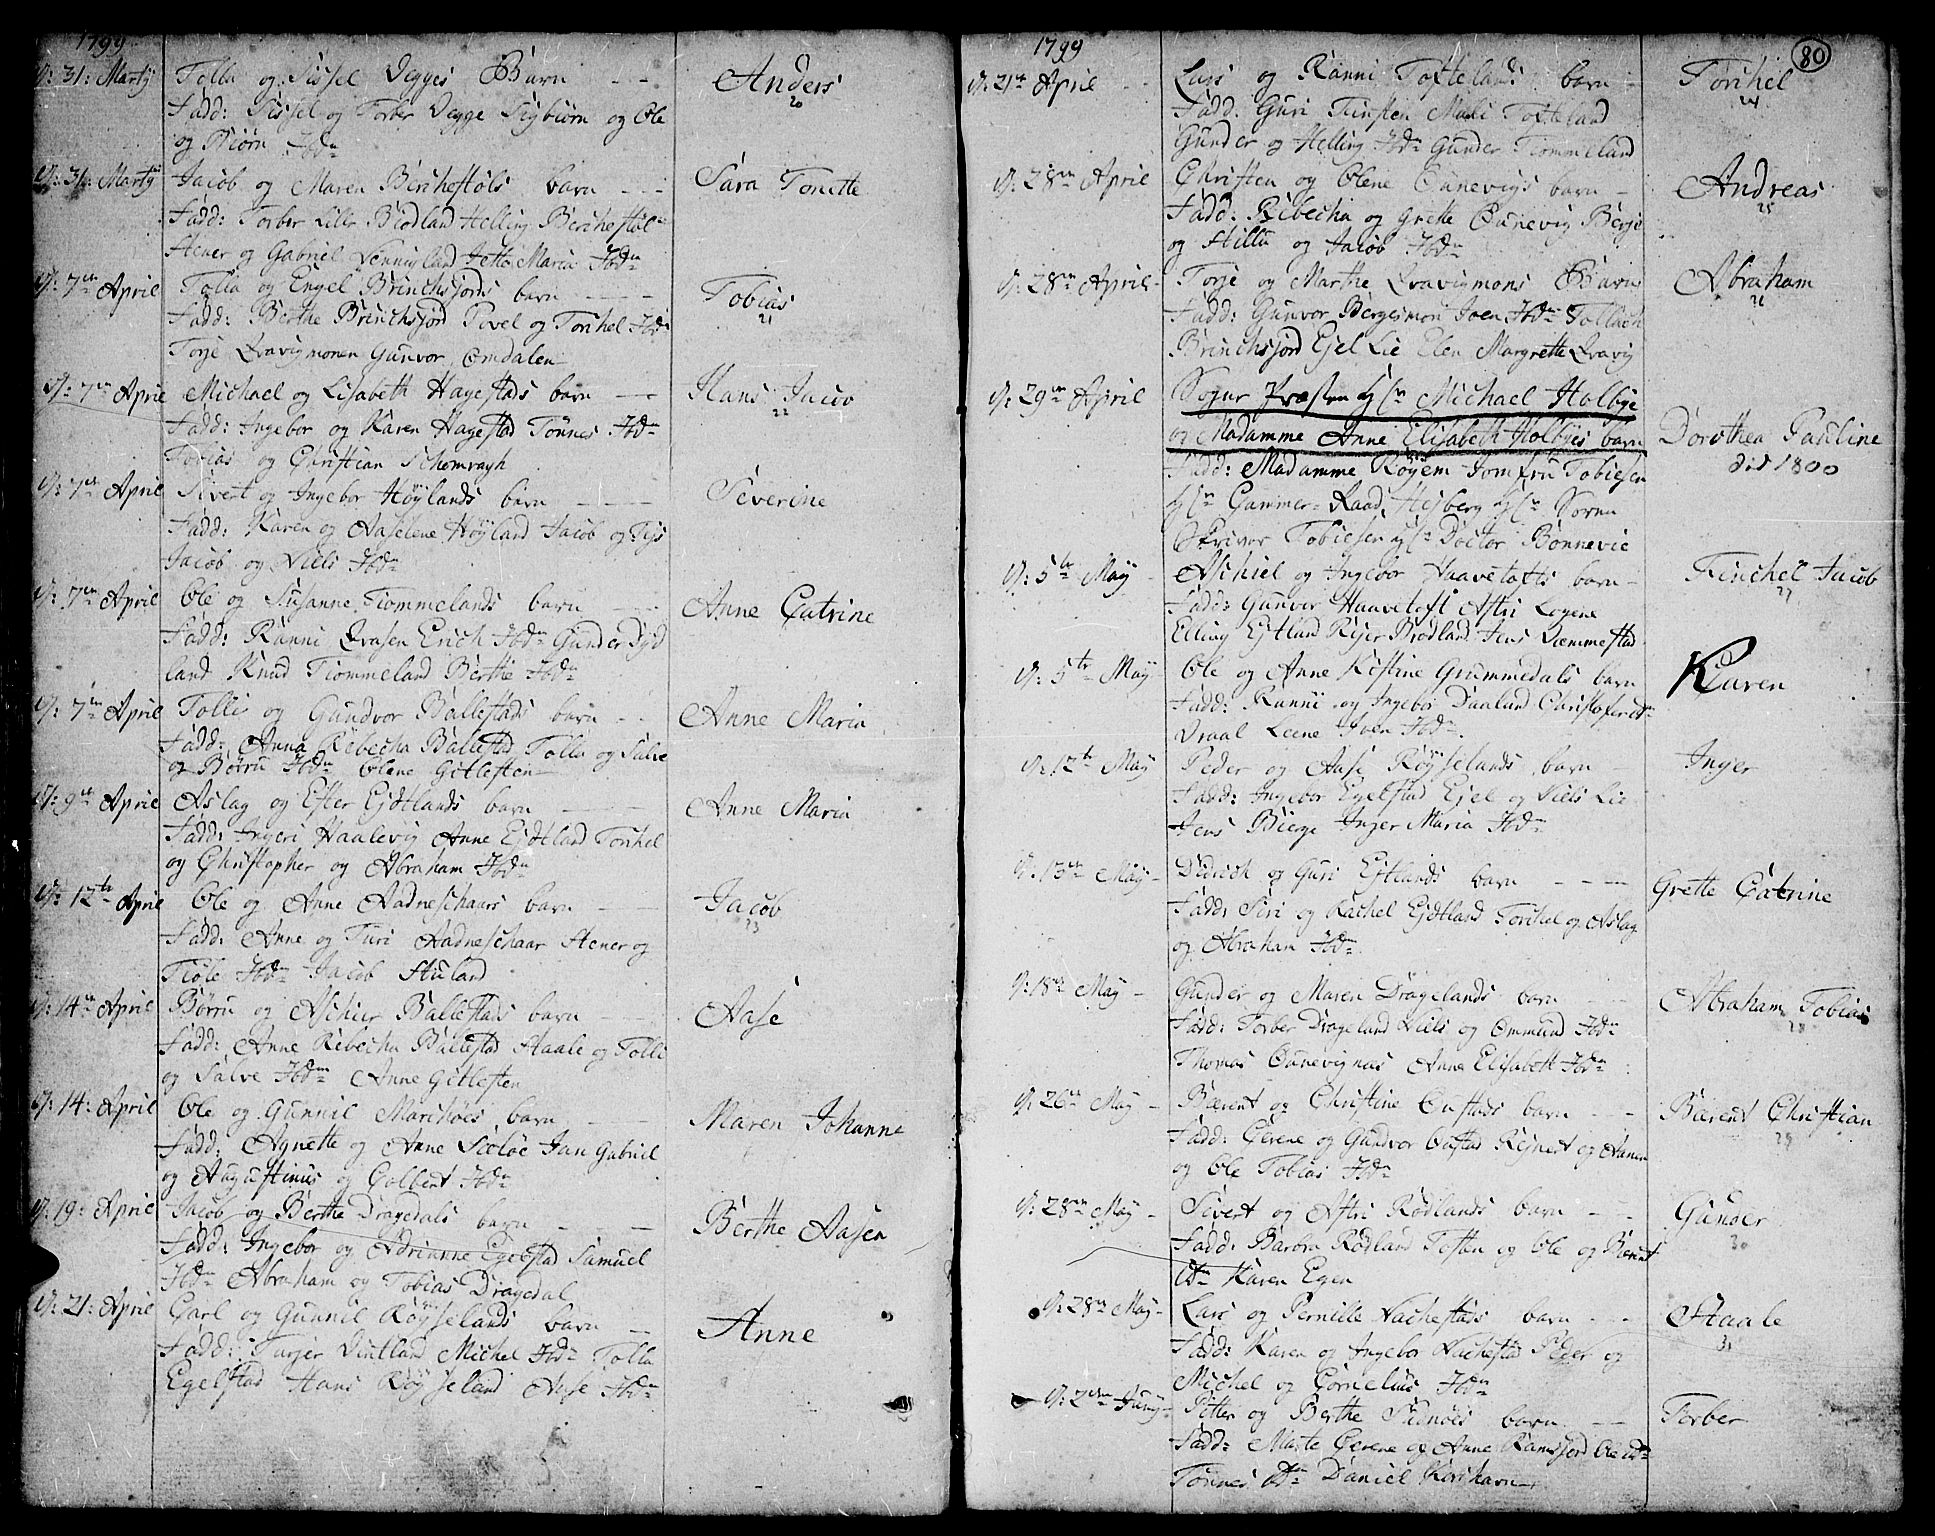 1799
d: 31: Martÿ Tolla og Sissel Vegges Barn - - Anders
20
Fadd: Sissel og Torber Vegge Sigbiörn og Ole
og Biörn Ibdm
d: 31: Martÿ Jacob og Maren Bercheftöls barn - - Sara Tonette
Fadd: Torber Lille Brodland Helling Bercheftöl
Stener og Gabriel Lennigland Jette Maria Ibdm
d: 7de April Tolla og Engel Brinchsjords barn - - Tobias
21
Fadd: Berthe Brinchsjord Povel og Torchel Ibdm
Torje Qvavigmonen Gunvor Omdalen
d: 7de April Michael og Lisabeth Hagestads barn - Hans Jacob
22
Fadd: Ingebor og Karen Hagestad Tönnes Ibdm
Tobias og Christian Schomragh
d: 7de April Sivert og Ingebor Höylands barn - - Severine
Fadd: Karen og Aaselene Höyland Jacob og Tejs
Jacob og Niels Ibdm
d: 7de April Ole og Susanne Tiommelands barn - Anne Catrine
Fadd: Ranni Qvasen Erich Ibdm Gunder Syd
land Knud Tiommeland Berthe Ibdm
d: 7de April Tolli og Gundvor Ballestads barn - - Anne Maria
Fadd: Anna Rebecha Ballestad Tolla og Salve
og Börru Ibdm Olene Gitlesten
d: 9de April Aslag og Ester Ejdtlands barn - - Anne Maria
Fadd: Ingeri Haalevig Anne Ejdtland Torchel
og Christopher og Abraham Ibdm
d: 12te April Ole og Anne Aadneschaars barn - Jacob
23
Fadd: Anne og Turi Aadneschaar Stener og
Tiöle Ibdm Jacob Stuland
d: 14de April Börru og Aschier Ballestads barn - Aase
Fadd: Anne Rebecha Ballestad Staale og Tolli
og Salve Ibdm Anne Gitlesten
d: 14: April Ole og Gunnil Marchöes barn - Maren Johanne
Fadd: Agnette og Anne Sæløe Jan Gabriel
og Augustinus og Golbert Ibdm
d: 19: April Jacob og Berthe Dragedals barn - - Berthe Aasen
Fadd: Ingebor og Adrianne Egelstad Samuel
Ibdm Abraham og Tobias Dragedal
d: 21: April Carl og Gunnil Röysselands barn - Anne
Fadd: Turjer Vintland Michel Ibdm Tolla
Egelstad Hans Röysseland Aase Ibdm
1799
80
d: 21de April - Lars og Ranni Tofteland's barn - Torchel
24
Fadd: Guri Finsten Mali Tofteland
Gunder og Helling Ibdm Gunder Tiommeland
d: 28de April Christen og Olene Ounevigs barn - Andreas
25
Fadd: Rebecha og Grette Ounevig Berje
og Stillu og Jacob Ibdm
d: 28de April - Torje og Marthe Qvavigmons Barn Abraham
26
Fadd: Gunvor Bergesmon Joen Ibdm Tollach
Brinchsjord Ejel Lie Elen Margrette Qvavig
d: 29de April Sogne Præsten Hr Michael Holbye
og Madamme Anne Elisabeth Holbyes barn Dorothea Pauline
död 1800
Fadd: Madamme Röyem Jomfru Tobiesen
Hr Cammer-Raad Hejberg Hr Soren
Skriver Tobiesen Hr Doctor Bonnevie
d: 5te May - Aschiel og Ingebor Haavetofts barn - Finchel Jacob
27
Fadd: Gunvor Haavetoft Astri Logene
Elling Ejtland Rejer Brodland Jens Lemmestad
d: 5te May Ole og Anne Kistine Grummedals barn Karen
Fadd: Ranni og Ingebor Daaland Christofer Ibdm
Draal Leene Iven Ibdm
d: 12te May Peder og Aase Röysselands barn - Inger
Fadd: Ingebor Egelstad Ejel og Niels Lie
Jens Bierge Inger Maria Ibdm
d: 13de May - Didrich og Guri Ejtlands barn - - Grette Catrine
Fadd: Siri og Rachel Ejdtland Torchel og Aslag
og Abraham Ibdm
d: 18de May - Gunder og Maren Dragelands barn - - Abraham Tobias
28
Fadd: Torber Drageland Niels og Ommund Ibdm
Thomas Ounevignæs Anne Elisabett Ibdm
d: 26de May - Bærent og Christine Oustads barn - - Bærent Christian
29
Fadd: Gerene og Gundvor Oustad Rejnert og Aanen
og Ole Tobias Ibdm
d: 28de May - Sivert og Astri Rödlands barn - - Gunder
30
Fadd: Barbra Rödland Testen og Ole og Berent
Ibdm Karen Egen
d: 28de May - Lars og Pernille Nachestads barn - - Staale
31
Fadd: Karen og Ingebor Nachestad Peder og
Michel og Cornelius Ibdm
d: 2den Juny - Petter og Berthe Sudnöes barn - - Torber
Fadd: Marte Gerene og Anne Ramsjord Ole Ibdm
Tönnes Ibdm Daniel Korshavn